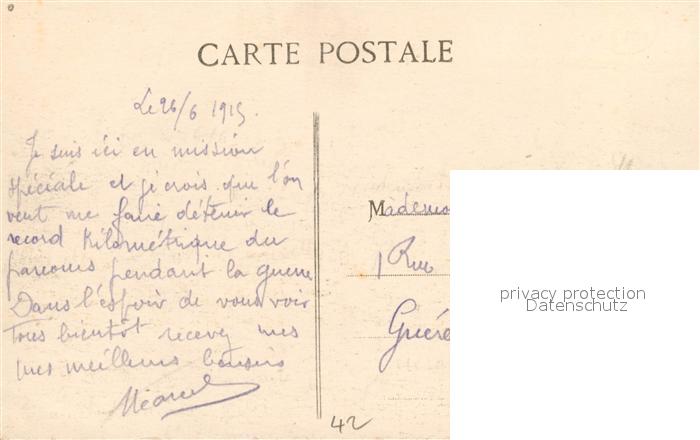 CARTE POSTALE
Le 26/6 1915.
Je suis ici en mission
spéciale et je crois que l'on
veut me faire détenir le
record Kilométrique du
parcours pendant la guerre
Dans l'espoir de vous voir
très bientôt recevez mes
mes meilleurs baisers
Marcel
Mademo
1 Rue
Guére
privacy protection
Datenschutz
42